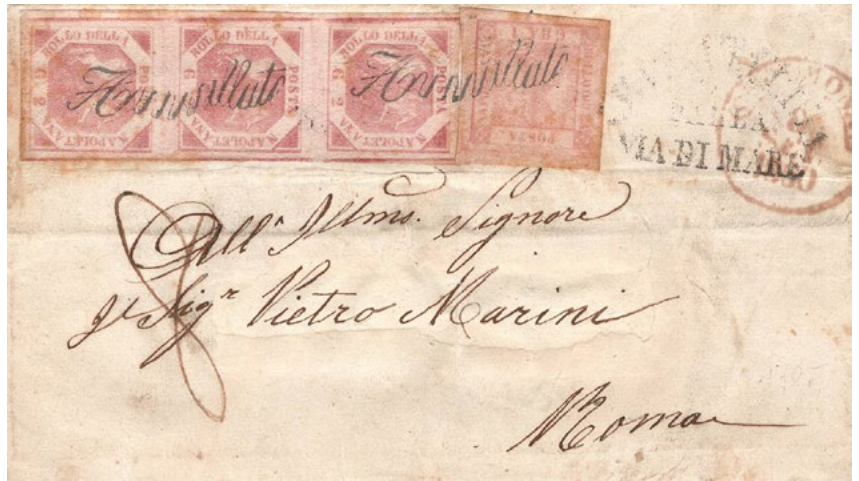 BOLLO DELLA POSTA NAPOLETANA G 2
BOLLO DELLA POSTA NAPOLETANA G 2
BOLLO DELLA POSTA NAPOLETANA G 2
Annullato
Annullato
VIA DI MARE
All' Illmo. Signore
Il Sigr Pietro Marini
Roma